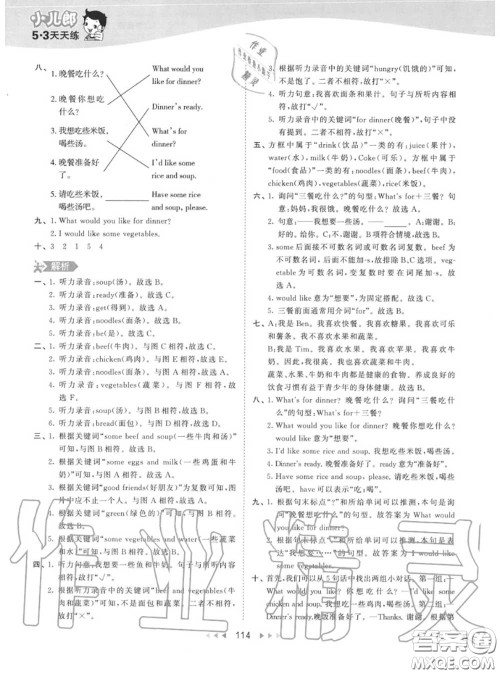 小儿郎
5·3天天练
八、1. 晚餐吃什么?
What would you like for dinner?
2. 晚餐你想吃什么?
Dinner's ready.
3. 我想吃些米饭,喝些汤。
What's for dinner?
4. 晚餐准备好了。
I'd like some rice and soup.
5. 请吃些米饭,喝些汤吧。
Have some rice and soup, please.
九、1. What would you like for dinner?
2. I would like some vegetables.
十、3 2 1 5 4
解析
一、1. 听力录音:soup(汤)。故选 B。
2. 听力录音:ready(准备)。故选 C。
3. 听力录音:get(得到)。故选 A。
4. 听力录音:noodles(面条)。故选 A。
5. 听力录音:he(是)。故选 C。
二、1. 听力录音:beef(牛肉)。与图 C 相符。故选 C。
2. 听力录音:chicken(鸡肉)。与图 E 相符。故选 E。
3. 听力录音:noodles(面条)。与图 A 相符。故选 A。
4. 听力录音:vegetables(蔬菜)。与图 F 相符。故选 F。
5. 听力录音:soup(汤)。与图 B 相符。故选 B。
6. 听力录音:bread(面包)。与图 D 相符。故选 D。
三、1. 根据关键词"some beef and soup(一些牛肉和汤)"可知,与图相符。故选 A。
2. 根据关键词"some eggs and milk(一些鸡蛋和牛奶)"可知,与图相符。故选 A。
3. 根据关键词"good friends(好朋友)"为复数可知,图片中应不止一个人。与图不相符。故打"×"。
4. 根据关键词"green(绿色的)"可知,与图相符。故打"√"。
5. 根据关键词"some vegetables and water(一些蔬菜和水)"可知,与图不相符。故打"×"。
四、1. 听力句意:我想要一些鱼和牛奶。句子与所听内容相符。故打"√"。
2. 根据听力录音中的关键词"beef and vegetables(牛肉和蔬菜)"可知,不是面和蔬菜。二者不相符。故打"×"。
3. 根据听力录音中的关键词"hungry(饥饿的)"可知,不是饱了。二者不相符。故打"×"。
4. 听力句意:我喜欢面条和果汁。句子与所听内容相符。故打"√"。
5. 听力录音中的关键词"for dinner(晚餐)",句子中没有提到。二者不相符。故打"×"。
五、方框中属于"drink(饮品)"一类的有:juice(果汁),water(水),milk(牛奶),Coke(可乐)。方框中属于"food(食品)"一类的有:noodles(面条),beef(牛肉),chicken(鸡肉),vegetables(蔬菜),rice(米饭)。
六、1. 询问"三餐吃什么?"的句型:What's for+三餐?句意:妈妈,我很饿。晚饭吃什么?故选 A。
2. 句意:——我想要一些汤。——____。A:谢谢。B:好的。给你。C:不,谢谢。B 项符合情境,故选 B。
3. some后面接不可数名词或可数名词复数。不可数名词后面不能加-s,故排除B,C选项。noodle(面条)为可数名词,变复数时要在词尾加-s。故选 A。
4. would like 意为"想要",为固定搭配。故选 C。
5. 三餐前面通常用介词"for"。故选 B。
七、A:我是 Ben。我喜欢快餐。我喜欢糖果。我喜欢可乐和薯条。我不喜欢水果和蔬菜。
B:我是 Tim。我喜欢水果。我喜欢蔬菜。我喜欢牛奶。因此,我很高。我也喜欢蛋糕和鸡肉。
蔬菜、水果、牛奶和牛肉都是健康的食物。养成良好的饮食习惯有益于青少年的身体健康。故选 B。
八、1. What's for dinner? 晚餐吃什么?询问"三餐吃什么?"的句型:What's for+三餐?
2. What would you like for dinner? 晚餐你想吃什么?
3. I'd like some rice and soup. 我想吃些米饭,喝些汤。
4. Dinner's ready. 晚餐准备好了。ready 意为"准备好"。
5. Have some rice and soup, please. 请吃些米饭,喝些汤吧。have 可以表示"吃;喝"。
九、1. 根据句末标点"?"和所给单词可以推测,本句是询问"晚餐你想吃什么?"的句型。故答案为 What would you like for dinner?
2. 根据句末标点"."和所给单词可以推测,本句是表达"我想要……"的句型。故答案为 I would like some vegetables.
十、首先,我们可以从 5 句话中找出两组小对话。第一组:——What would you like for dinner? 晚餐你想吃什么?——I'd like some chicken and soup. 我想吃一些鸡肉,喝些汤。第二组:——Dinner's ready. 晚餐准备好了。——Thanks. 谢谢。根据
114
作业精灵
答案圈